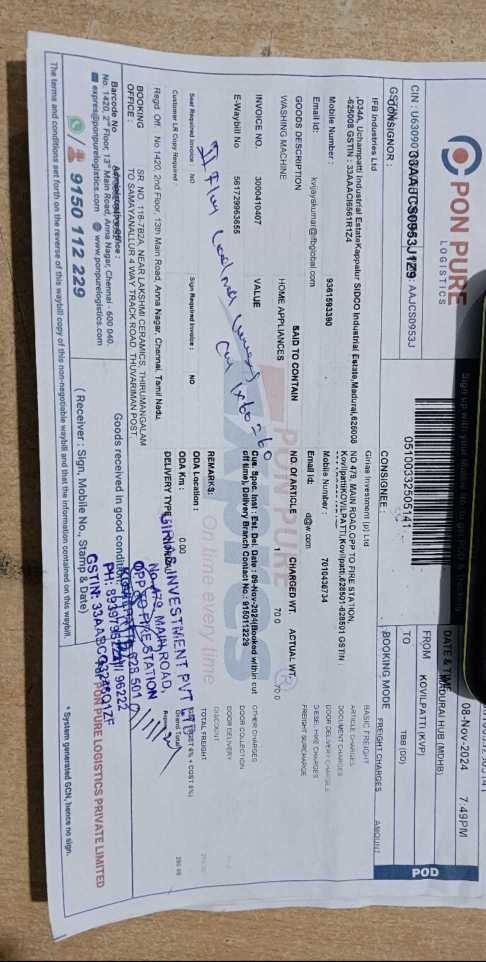 PON PURE
LOGISTICS
CIN : U63090
GSTIN : 33AAJCS0953J1Z9
: AAJCS0953J
05100332505141
DATE & TIME
08-Nov-2024 7:49PM
FROM
MADURAI HUB (MDHB)
KOVILPATTI (KVP)
TO
BOOKING MODE
TBB (DD)
POD
CONSIGNOR :
IFB Industries Ltd
,D34A, Uchampatti Industrial EstateKappalur SIDCO Industrial Estate,Madurai,626008
-625008 GSTIN : 33AAACI6561R1Z4
Mobile Number : 9361593390
Email Id: kvijayskumar@ifbglobal.com
CONSIGNEE :
Girias Investment (p) Ltd
NO 479, MAIN ROAD OPP TO FIRE STATION,
KovilpattiKOVILPATTI,Kovilpatti,628501-628501 GSTIN :
Mobile Number : 7010436734
Email Id: d@w.com
FREIGHT CHARGES AMOUNT
BASIC FREIGHT
ARTICLE CHARGES
DOCUMENT CHARGES
DOOR DELIVERY CHARGES
DIESEL HIKE CHARGES
FREIGHT SURCHARGE
OTHER CHARGES
DOOR COLLECTION
DOOR DELIVERY
DISCOUNT
TOTAL FREIGHT
Grand Total
GOODS DESCRIPTION SAID TO CONTAIN NO. OF ARTICLE CHARGED WT. ACTUAL WT.
WASHING MACHINE HOME APPLIANCES 1 70.0 70.0
INVOICE NO. 3000410407 VALUE
E-Waybill No 561729963656
Cus. Spoc. Inst : Est. Del. Date : 09-Nov-2024(Booked within cut
off time), Delivery Branch Contact No : 9150112229
1x60=60
Seal Required Invoice : NO
Sign Required Invoice : NO
Customer LR Copy Required
REMARKS:
ODA Location :
ODA Km : 0.00
DELIVERY TYPE
PON PURE
EXPRES
On time every time
Regd. Off : No.1420, 2nd Floor, 13th Main Road, Anna Nagar, Chennai, Tamil Nadu.
BOOKING
OFFICE :
SR. NO : 118-7B2A, NEAR LAKSHMI CERAMICS, THIRUMANGALAM
TO SAMAYANALLUR 4 WAY TRACK ROAD, THUVARIMAN POST,
GIRIAS INVESTMENT PVT LTD
No.479, MAIN ROAD,
OPP TO FIRE STATION
628 501
GSTIN: 33AABCG
Barcode No
Administrative Office :
No. 1420, 2nd Floor, 13th Main Road, Anna Nagar, Chennai - 600 040.
expres@ponpurelogistics.com www.ponpurelogistics.com
9150 112 229
Goods received in good condition
( Receiver : Sign, Mobile No., Stamp & Date)
For PON PURE LOGISTICS PRIVATE LIMITED
The terms and conditions set forth on the reverse of this waybill copy of this non-negotiable waybill and that the information contained on this waybill.
* System generated GCN, hence no sign.